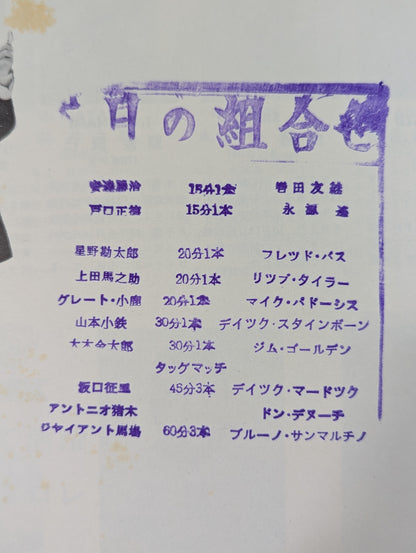 今日の組合せ
安達勝治 15分1本 岩田友継
戸口正徳 15分1本 永源遙
星野勘太郎 20分1本 フレツド・バス
上田馬之助 20分1本 リツプ・タイラー
グレート・小鹿 20分1本 マイク・パドーシス
山本小鉄 30分1本 デイツク・スタインボーン
大木金太郎 30分1本 ジム・ゴールデン
タッグマッチ
坂口征二 45分3本 デイツク・マードツク
アントニオ猪木 ドン・デヌーチ
ジャイアント馬場 60分3本 ブルーノ・サンマルチノ